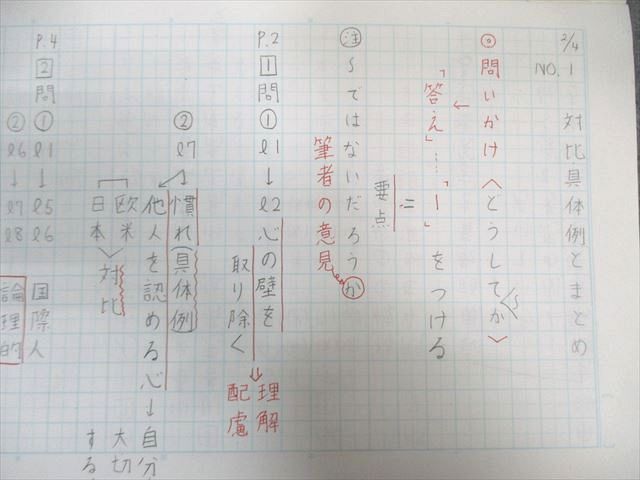 2/4
NO.1 対比具体例とまとめ
◎問いかけ〈どうしてか〉
↓
「答え」…「ー」をつける
＝
要点
㊟ 〜ではないだろうか
筆者の意見
P.2
1 問 ① l1→l2 心の壁を
取り除く
⇒ 理解
配慮
② l7 慣れ(具体例)
他人を認める心→自分
大切
する
欧米
日本 > 対比
P.4
2 問 ① l1→l5 l6 国際人
② l6→l7 l8 論理的